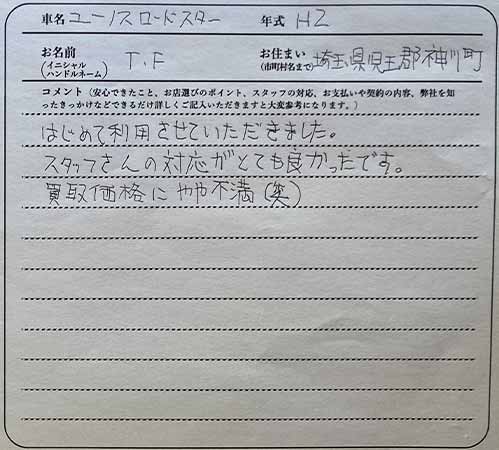 車名 ユーノスロードスター 年式 H2
お名前 (イニシャル ハンドルネーム) T.F お住まい (市町村名まで) 埼玉県児玉郡神川町
コメント（安心できたこと、お店選びのポイント、スタッフの対応、お支払いや契約の内容、弊社を知
ったきっかけなどできるだけ詳しくご記入いただきますと大変参考になります。）
はじめて利用させていただきました。
スタッフさんの対応がとても良かったです。
買取価格にやや不満（笑）